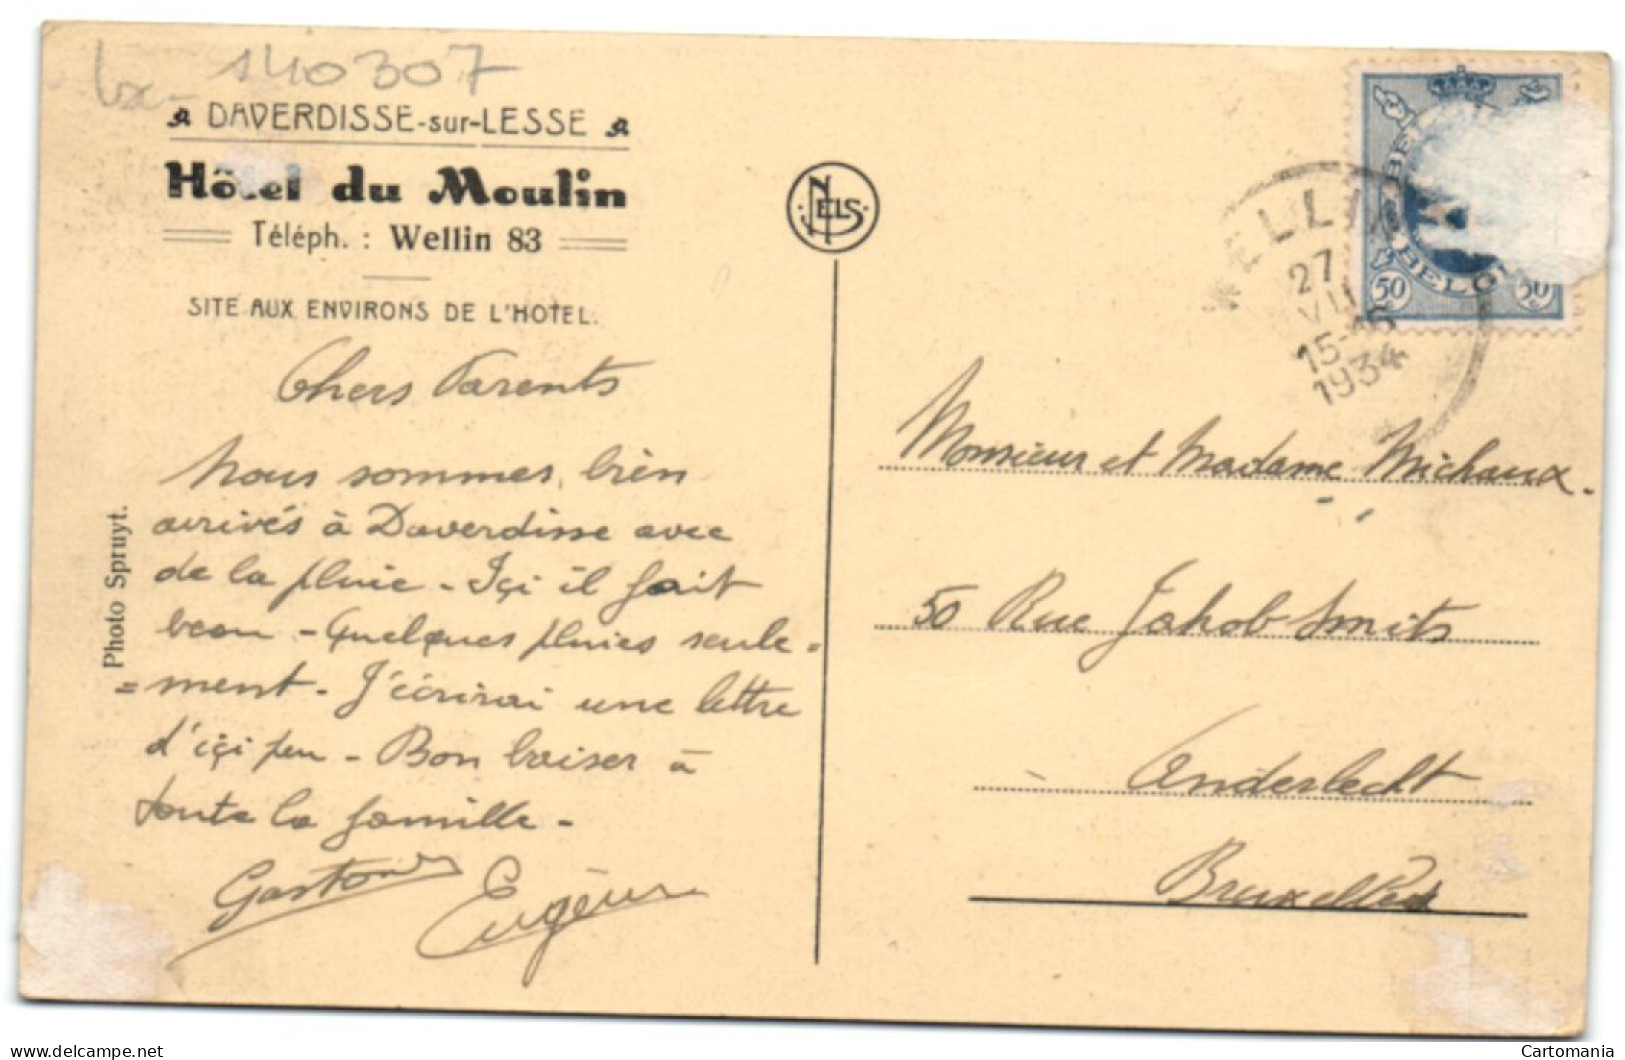 140307
DAVERDISSE-sur-LESSE
Hôtel du Moulin
Téléph. : Wellin 83
SITE AUX ENVIRONS DE L'HOTEL.
Chers Parents
Nous sommes bien
arrivés à Daverdisse avec
de la pluie - Içi il fait
beau - Quelques pluies seule-
=ment - J'écrirai une lettre
d'içi peu - Bon baiser à
toute la famille -
Gaston
Eugène
Photo Spruyt.
NELS
WELLIN
27
VII
15-16
1934
BELGI
50 50
Monsieur et Madame Michaux.
50 Rue Jakob Smits
à Anderlecht
Bruxelles
www.delcampe.net
Cartomania